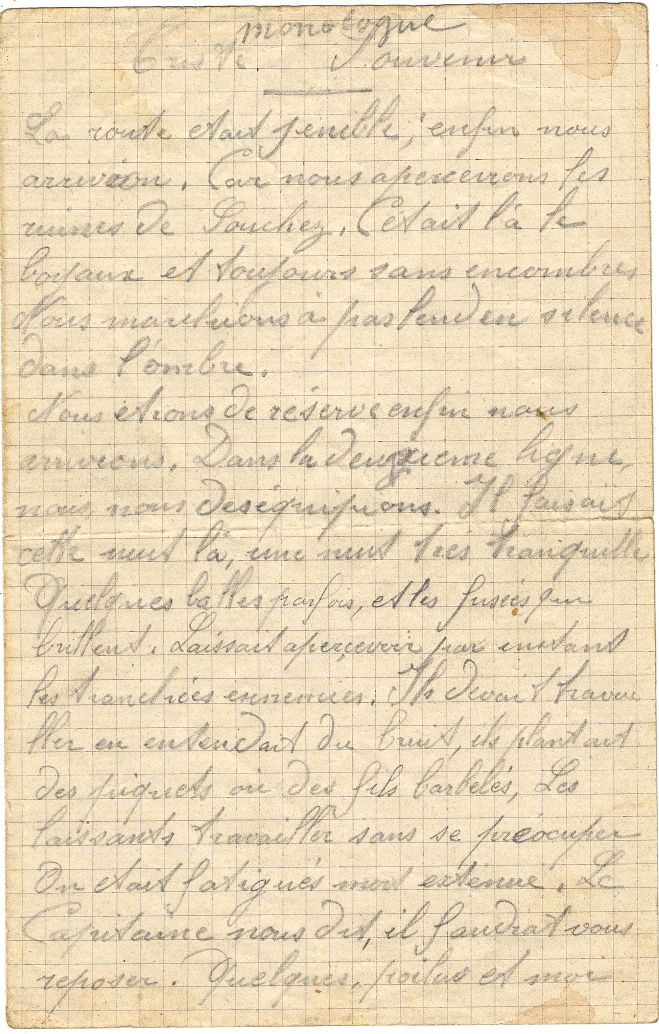 monologue
Triste Souvenir
La route etait penible, enfin nous
arrivion. Car nous apercevions les
ruines de Souchez. C'etait là le
boyaux et toujours sans encombres
Nous marchions à pas lend en silence
dans l'ombre.
Nous etions de réserve enfin nous
arrivions. Dans la deuxieme ligne,
nous nous deséquipions. Il faisait
cette nuit là, une nuit très tranquille
Quelques balles parfois, et les fusées qui
brillent. Laissait aperçevoir par instant
les tranchées ennemies. Ils devait travai
ller on entendait du bruit, ils plantait
des piquets ou des fils barbelés, Les
laissants travailler sans se préocuper
On etait fatigués mort exténué. Le
Capitaine nous dit, il faudrat vous
reposer. Quelques, poilus et moi